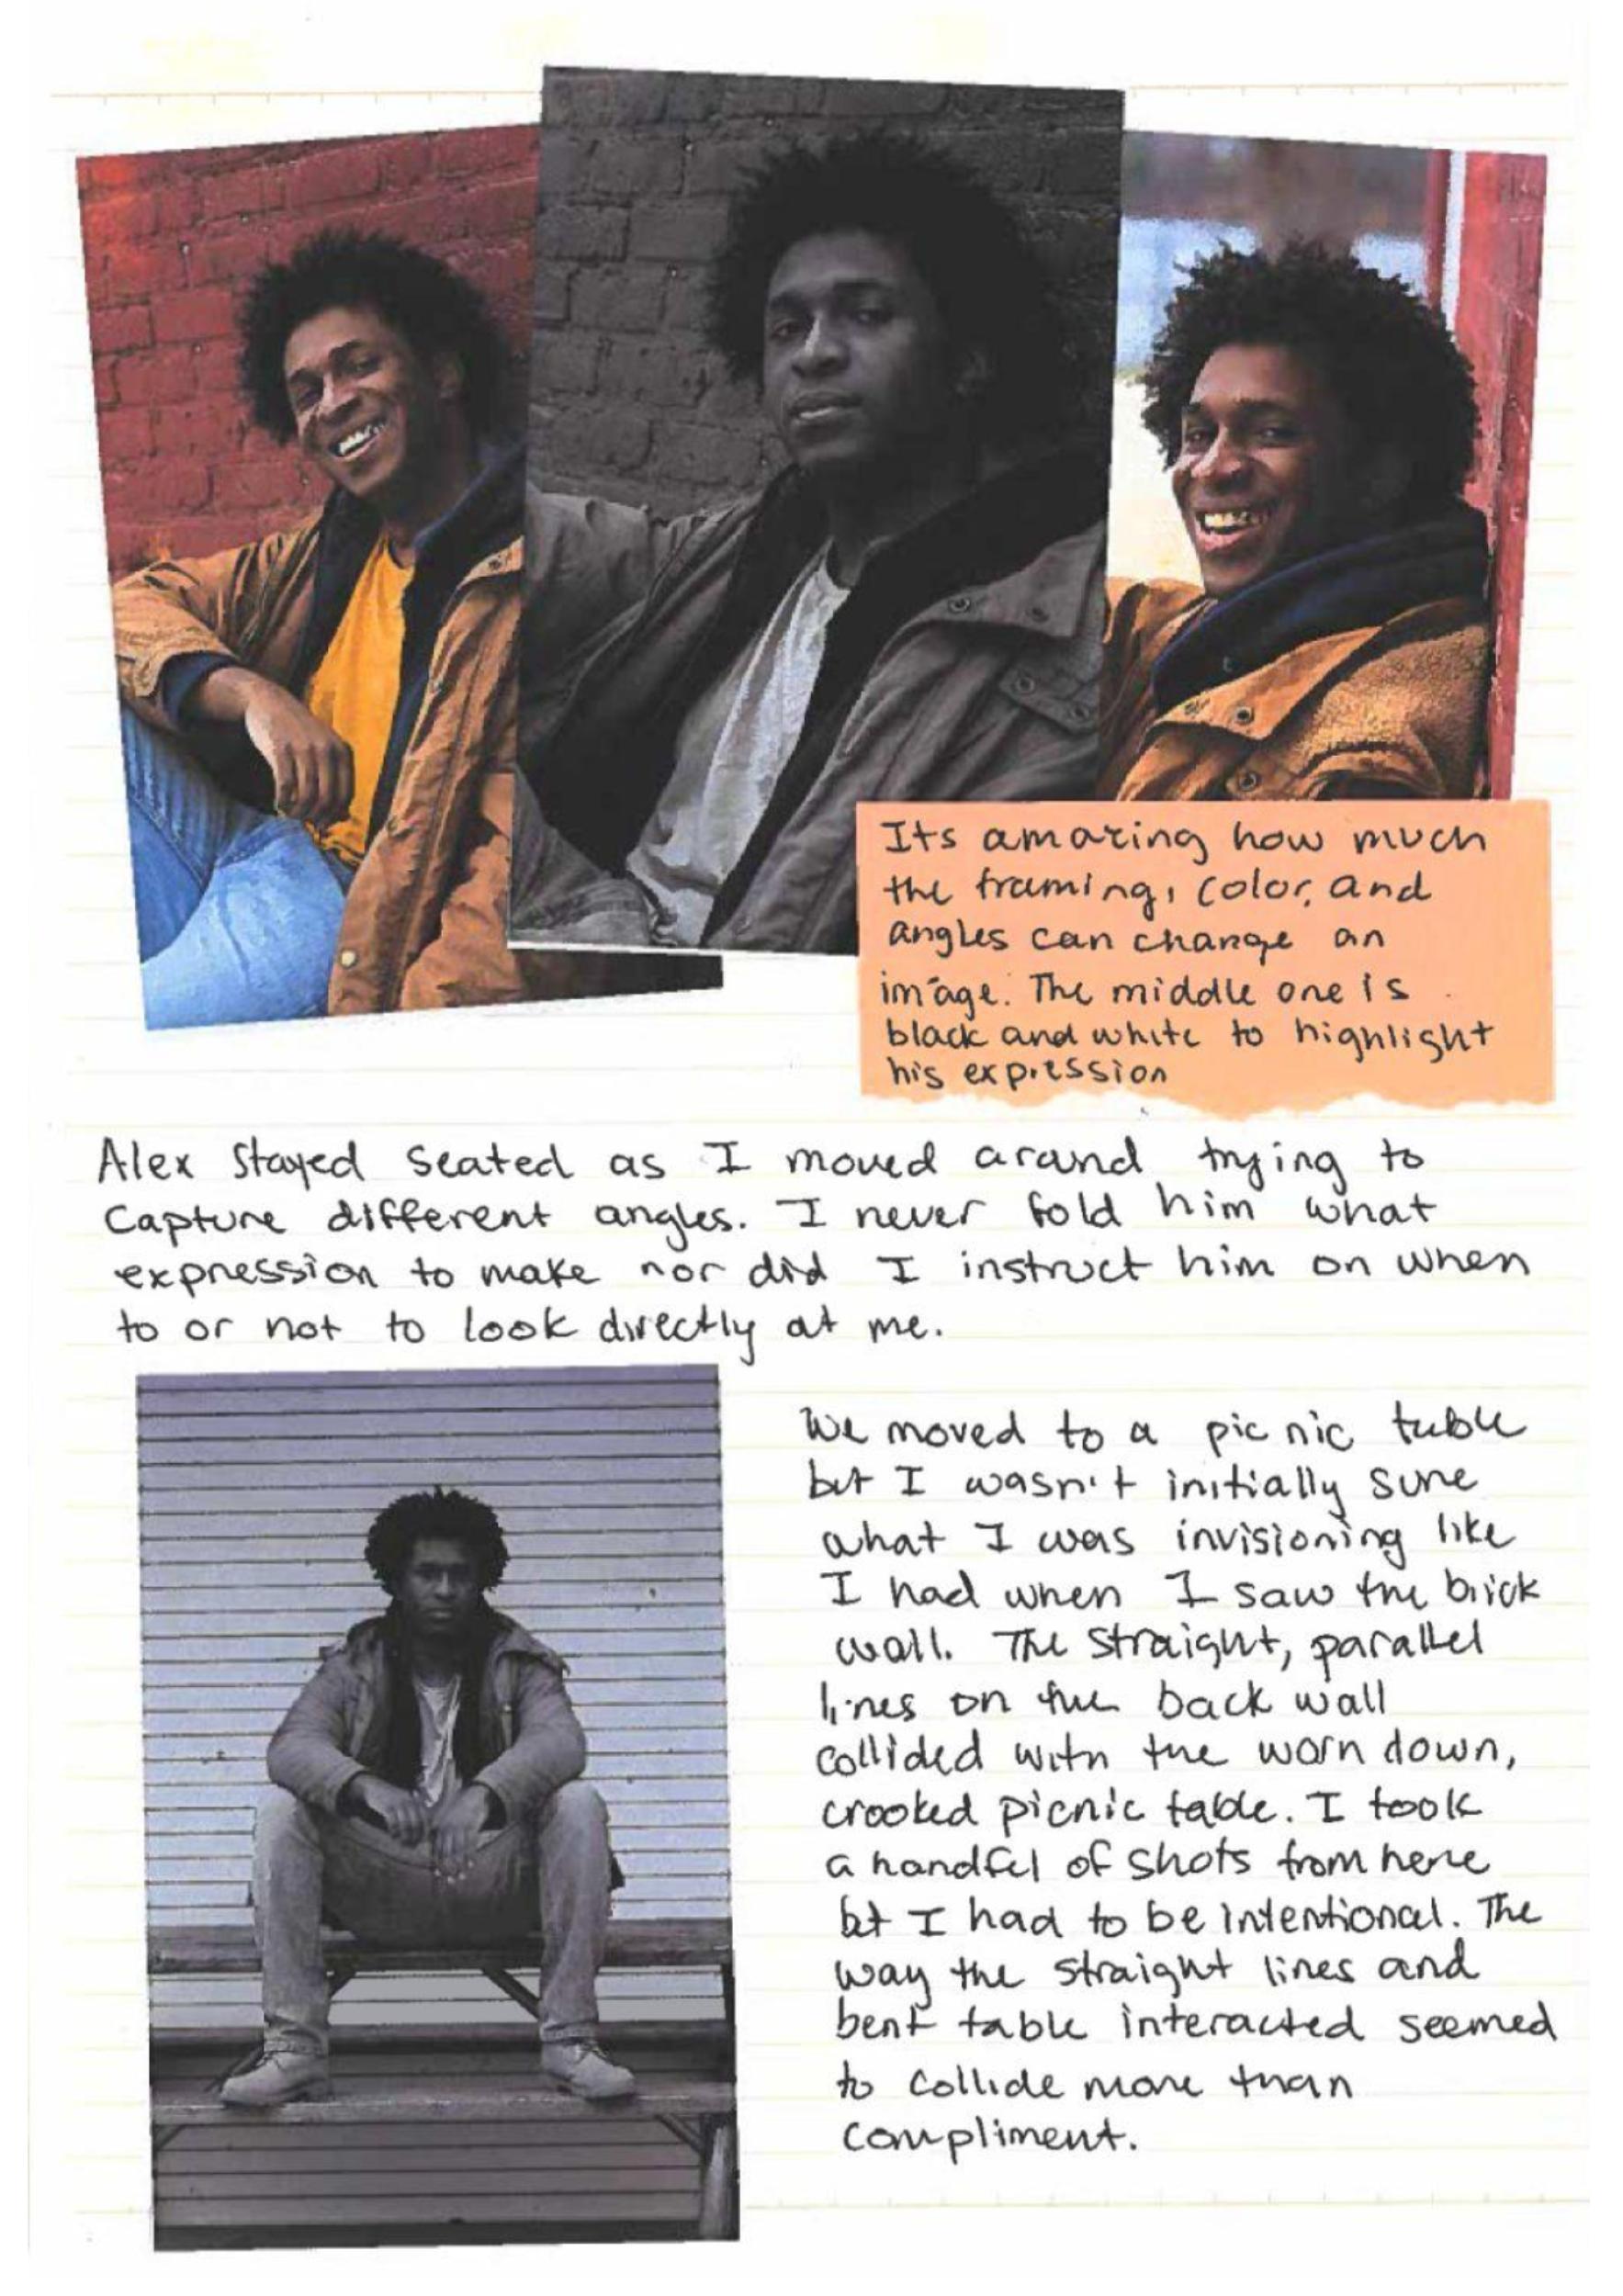 Its amazing how much
the framing, color, and
angles can change an
image. The middle one is
black and white to highlight
his expression
Alex stayed seated as I moved around trying to
capture different angles. I never told him what
expression to make nor did I instruct him on when
to or not to look directly at me.
We moved to a picnic table
but I wasn't initially sure
what I was invisioning like
I had when I saw the brick
wall. The straight, parallel
lines on the back wall
collided with the worn down,
crooked picnic table. I took
a handful of shots from here
but I had to be intentional. The
way the straight lines and
bent table interacted seemed
to collide more than
compliment.